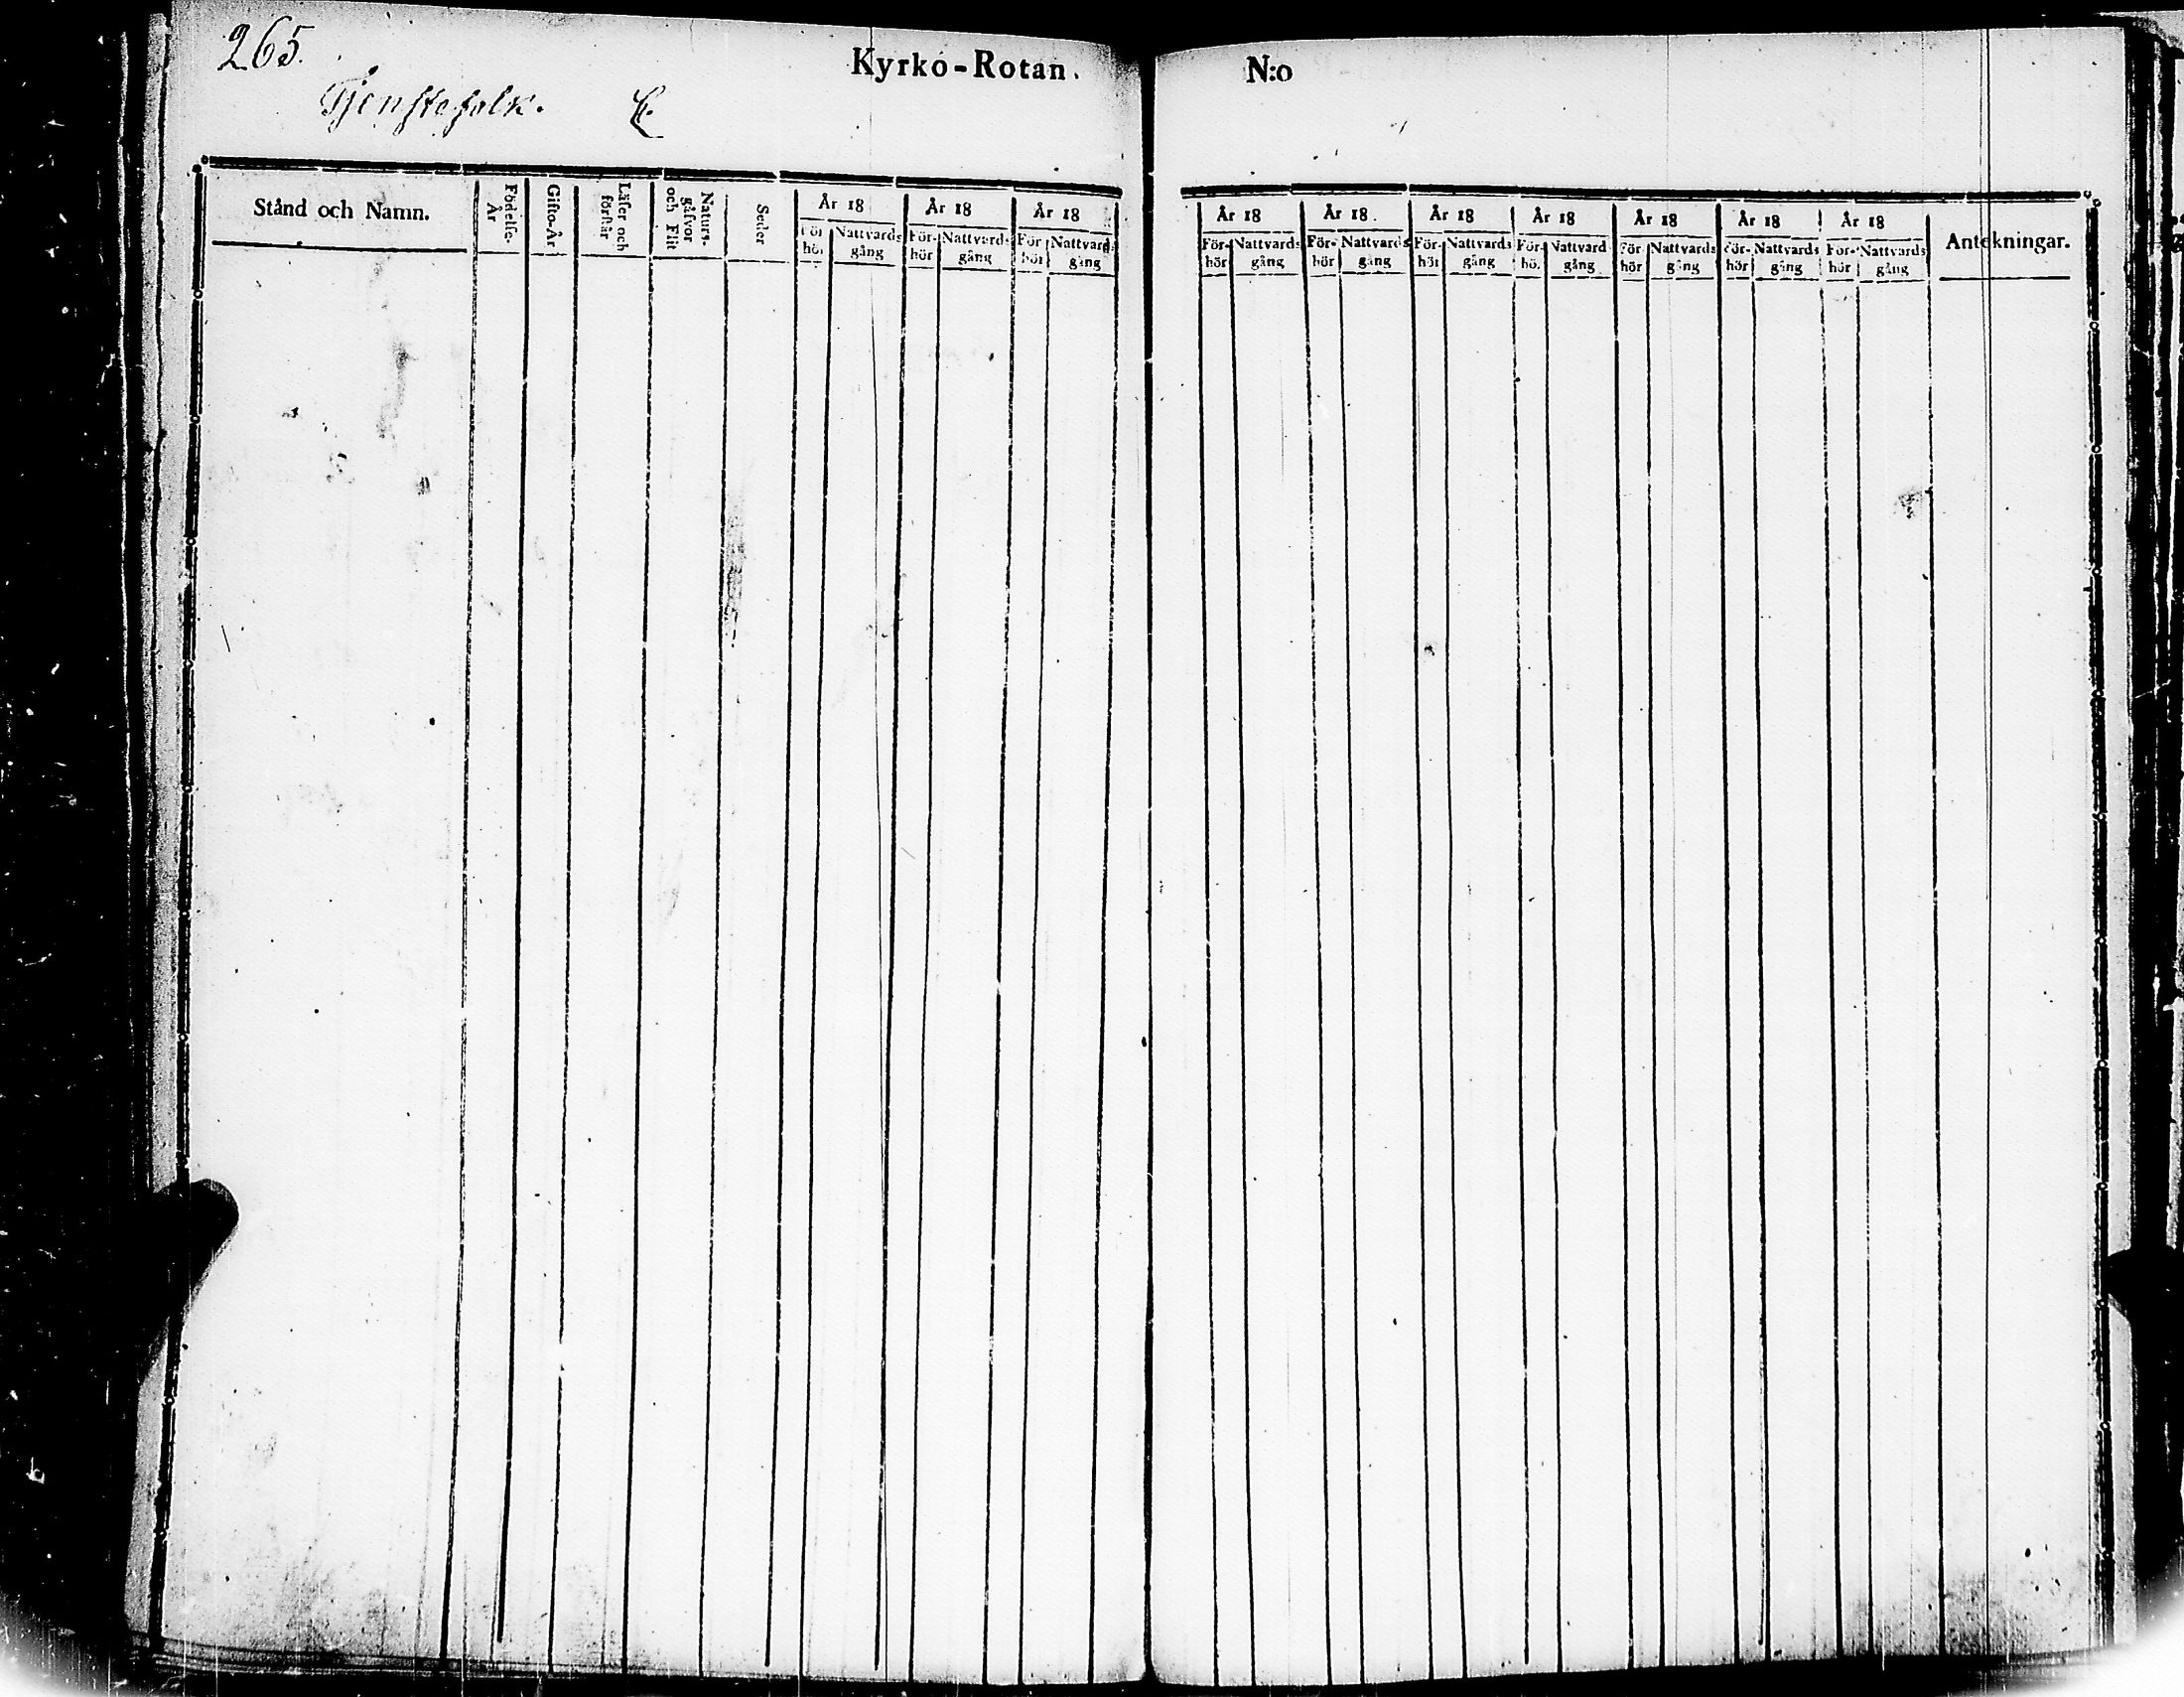 265.
Kyrko-Rotan.
N:o
Tjenstefolk.
Stånd och Namn.
Födelse-År
Gifto-År
Läser och förstår
Naturs-gåfvor och Flit
Seder
År 18
För-hör
Nattvards gång
År 18
För-hör
Nattvards gång
År 18
För-hör
Nattvards gång
År 18
För-hör
Nattvards gång
År 18.
För-hör
Nattvards gång
År 18
För-hör
Nattvards gång
År 18
För-hör
Nattvards gång
År 18
För-hör
Nattvards gång
År 18
För-hör
Nattvards gång
År 18
För-hör
Nattvards gång
Antekningar.